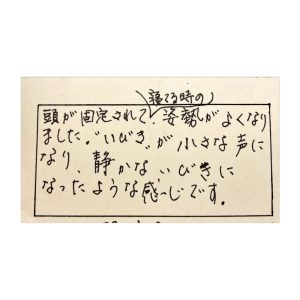 寝てる時の
頭が固定されて姿勢がよくなり
ました。"いびき"が小さな声に
なり、静かないびきに
なったような感じです。